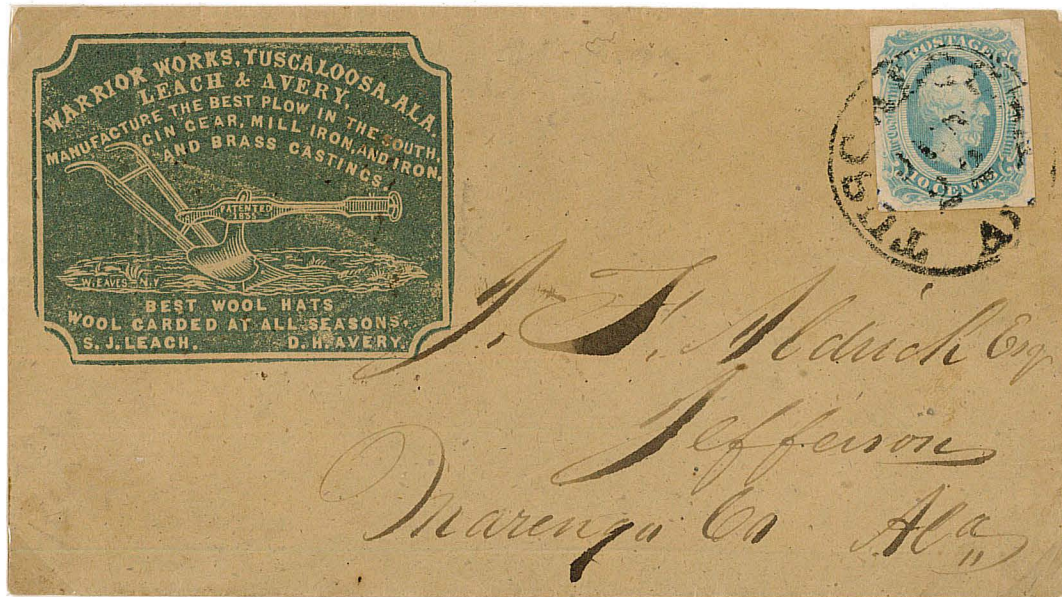 WARRIOR WORKS, TUSCALOOSA, ALA.
LEACH & AVERY,
MANUFACTURE THE BEST PLOW IN THE SOUTH,
GIN GEAR, MILL IRON, AND IRON,
AND BRASS CASTINGS.
PATENTED
1855
W. EAVES N.Y
BEST WOOL HATS
WOOL CARDED AT ALL SEASONS.
S. J. LEACH. D. H. AVERY.
POSTAGE
10 CENTS
TUSC
J. F. Aldrich Esq
Jefferson
Marengo Co Ala